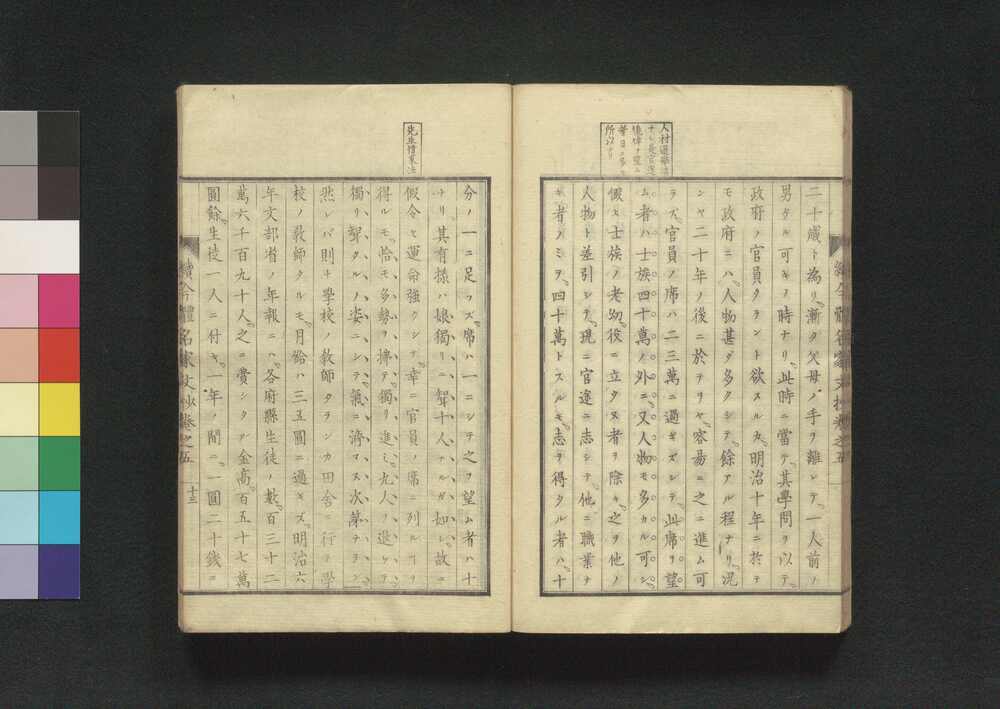 二十歳ト為リ漸ク父母ノ手ヲ離レテ一人前ノ
男タル可キノ時ナリ此時ニ當テ其學問ヲ以テ
政府ノ官員タラント欲スルカ明治十年ニ於テ
モ政府ニハ人物甚ダ多クシテ餘アル程ナリ況
ンヤ二十年ノ後ニ於テヲヤ容易ニ之ニ進ム可
ラズ官員ノ席ハ二三萬ニ過ギズシテ此席ヲ望
ム者ハ士族四十萬ノ外ニ又人物モ多カル可シ
假令士族ノ老幼役ニ立タヌ者ヲ除キ之ヲ他ノ
人物ト差引シテ現ニ官途ニ志シテ他ニ職業ナ
キ者ノミヲ四十萬トスルモ志ヲ得タル者ハ十
分ノ一ニ足ラズ席ハ一ニシテ之ヲ望ム者ハ十
ナリ其有樣ハ娘獨リニ聟十人アルガ如シ故ニ
假令ヒ運命強クシテ幸ニ官員ノ席ニ列ルヿヲ
得ルモ恰モ多勢ヲ押テ獨リ進ミ九人ヲ退ケテ
獨リ聟タルノ姿ニシテ氣ニ濟マヌ次第ナラン
然レバ則チ學校ノ教師タランカ田舎ニ行テ學
校ノ教師タルモ月給ハ三五圓ニ過ギズ明治六
年文部省ノ年報ニハ各府縣生徒ノ數百三十二
萬六千百九十人之ニ費シタル金高百五十七萬
圓餘生徒一人ニ付キ一年ノ間ニ一圓二十錢ニ
續今體名家文抄卷之五
十三